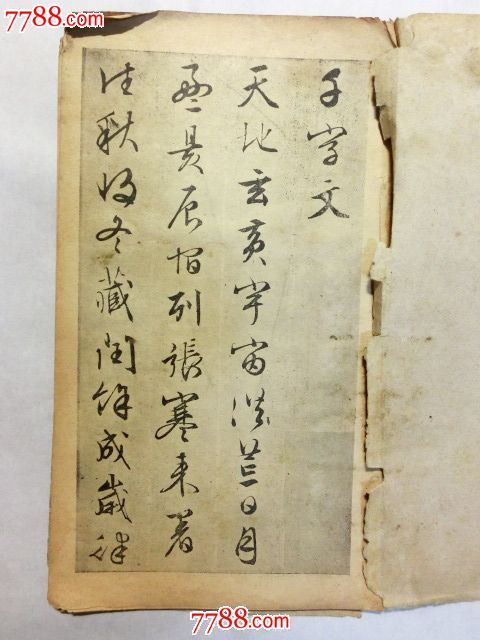 7788.com
7788.com
千字文
天地玄黃宇宙洪荒日月
盈昃辰宿列張寒来暑
往秋收冬藏閏餘成歲律
7788.com